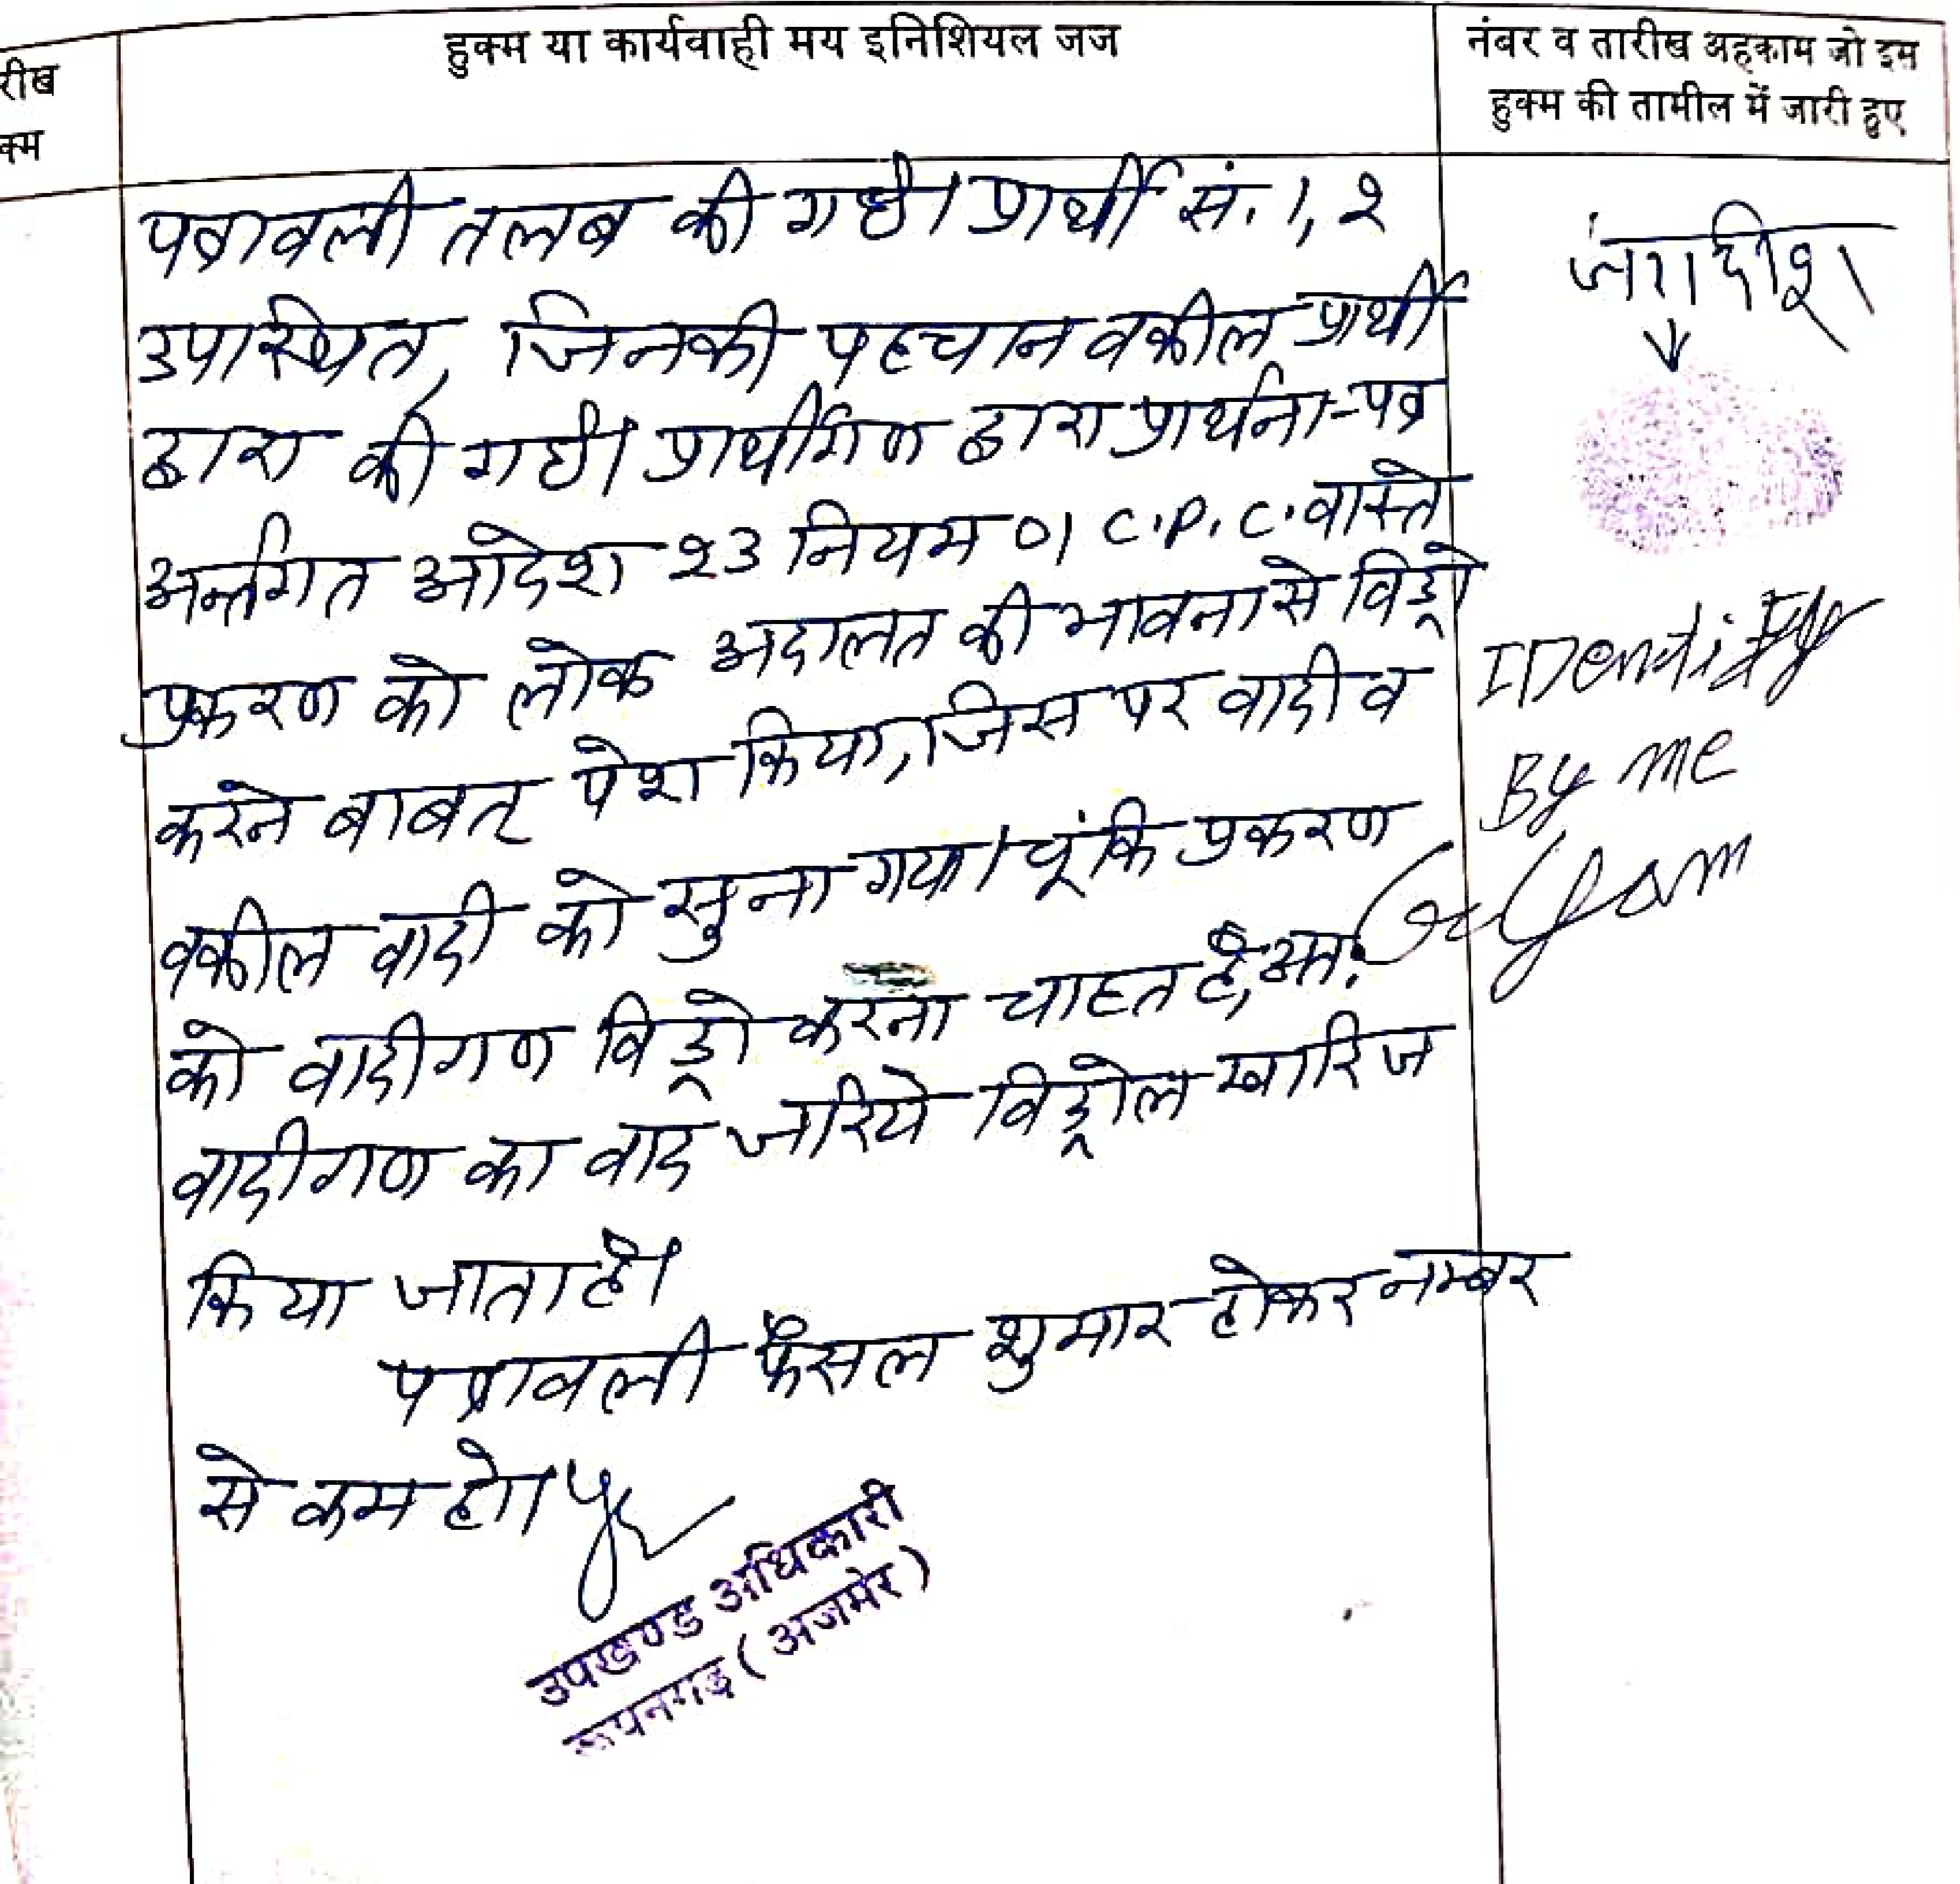 रीख
क्म
हुक्म या कार्यवाही मय इनिशियल जज
नंबर व तारीख अहकाम जो इस
हुक्म की तामील में जारी हुए
पत्रावली तलब की गई। प्रार्थी सं. 1, 2
उपस्थित, जिनकी पहचान वकील प्रार्थी
द्वारा की गई। प्रार्थीगण द्वारा प्रार्थना-पत्र
अर्न्तगत आदेश 23 नियम 01 C.P.C. वास्ते
प्रकरण को लोक अदालत की भावना से विड्रो
करने बाबत् पेश किया, जिस पर वादी व
वकील वादी को सुना गया। चूंकि प्रकरण
को वादीगण विड्रो करना चाहते है, अतः
वादीगण का वाद जरिये विड्रोल खारिज
किया जाता है।
पत्रावली फैसल शुमार होकर नम्बर
से कम हो।
उपखण्ड अधिकारी
रूपनगढ़ (अजमेर)
जगदीश
IDentify
By me